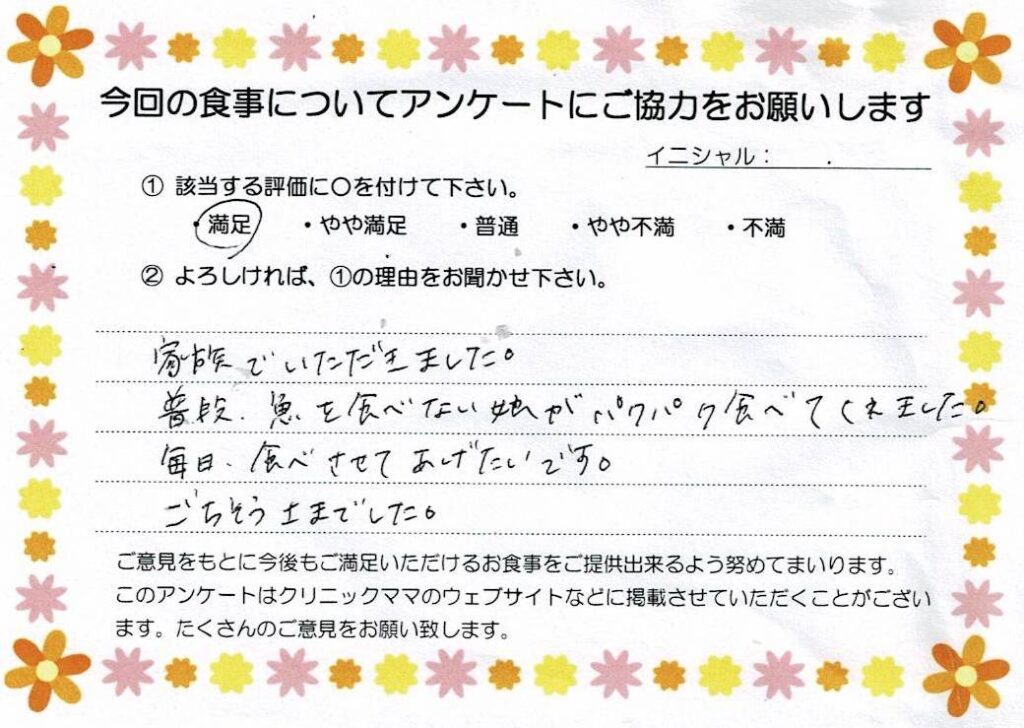 今回の食事についてアンケートにご協力をお願いします
イニシャル： .
① 該当する評価に○を付けて下さい。
・満足 ・やや満足 ・普通 ・やや不満 ・不満
② よろしければ、①の理由をお聞かせ下さい。
家族でいただきました。
普段、魚を食べない娘がパクパク食べてくれました。
毎日、食べさせてあげたいです。
ごちそうさまでした。
ご意見をもとに今後もご満足いただけるお食事をご提供出来るよう努めてまいります。
このアンケートはクリニックママのウェブサイトなどに掲載させていただくことがござい
ます。たくさんのご意見をお願い致します。